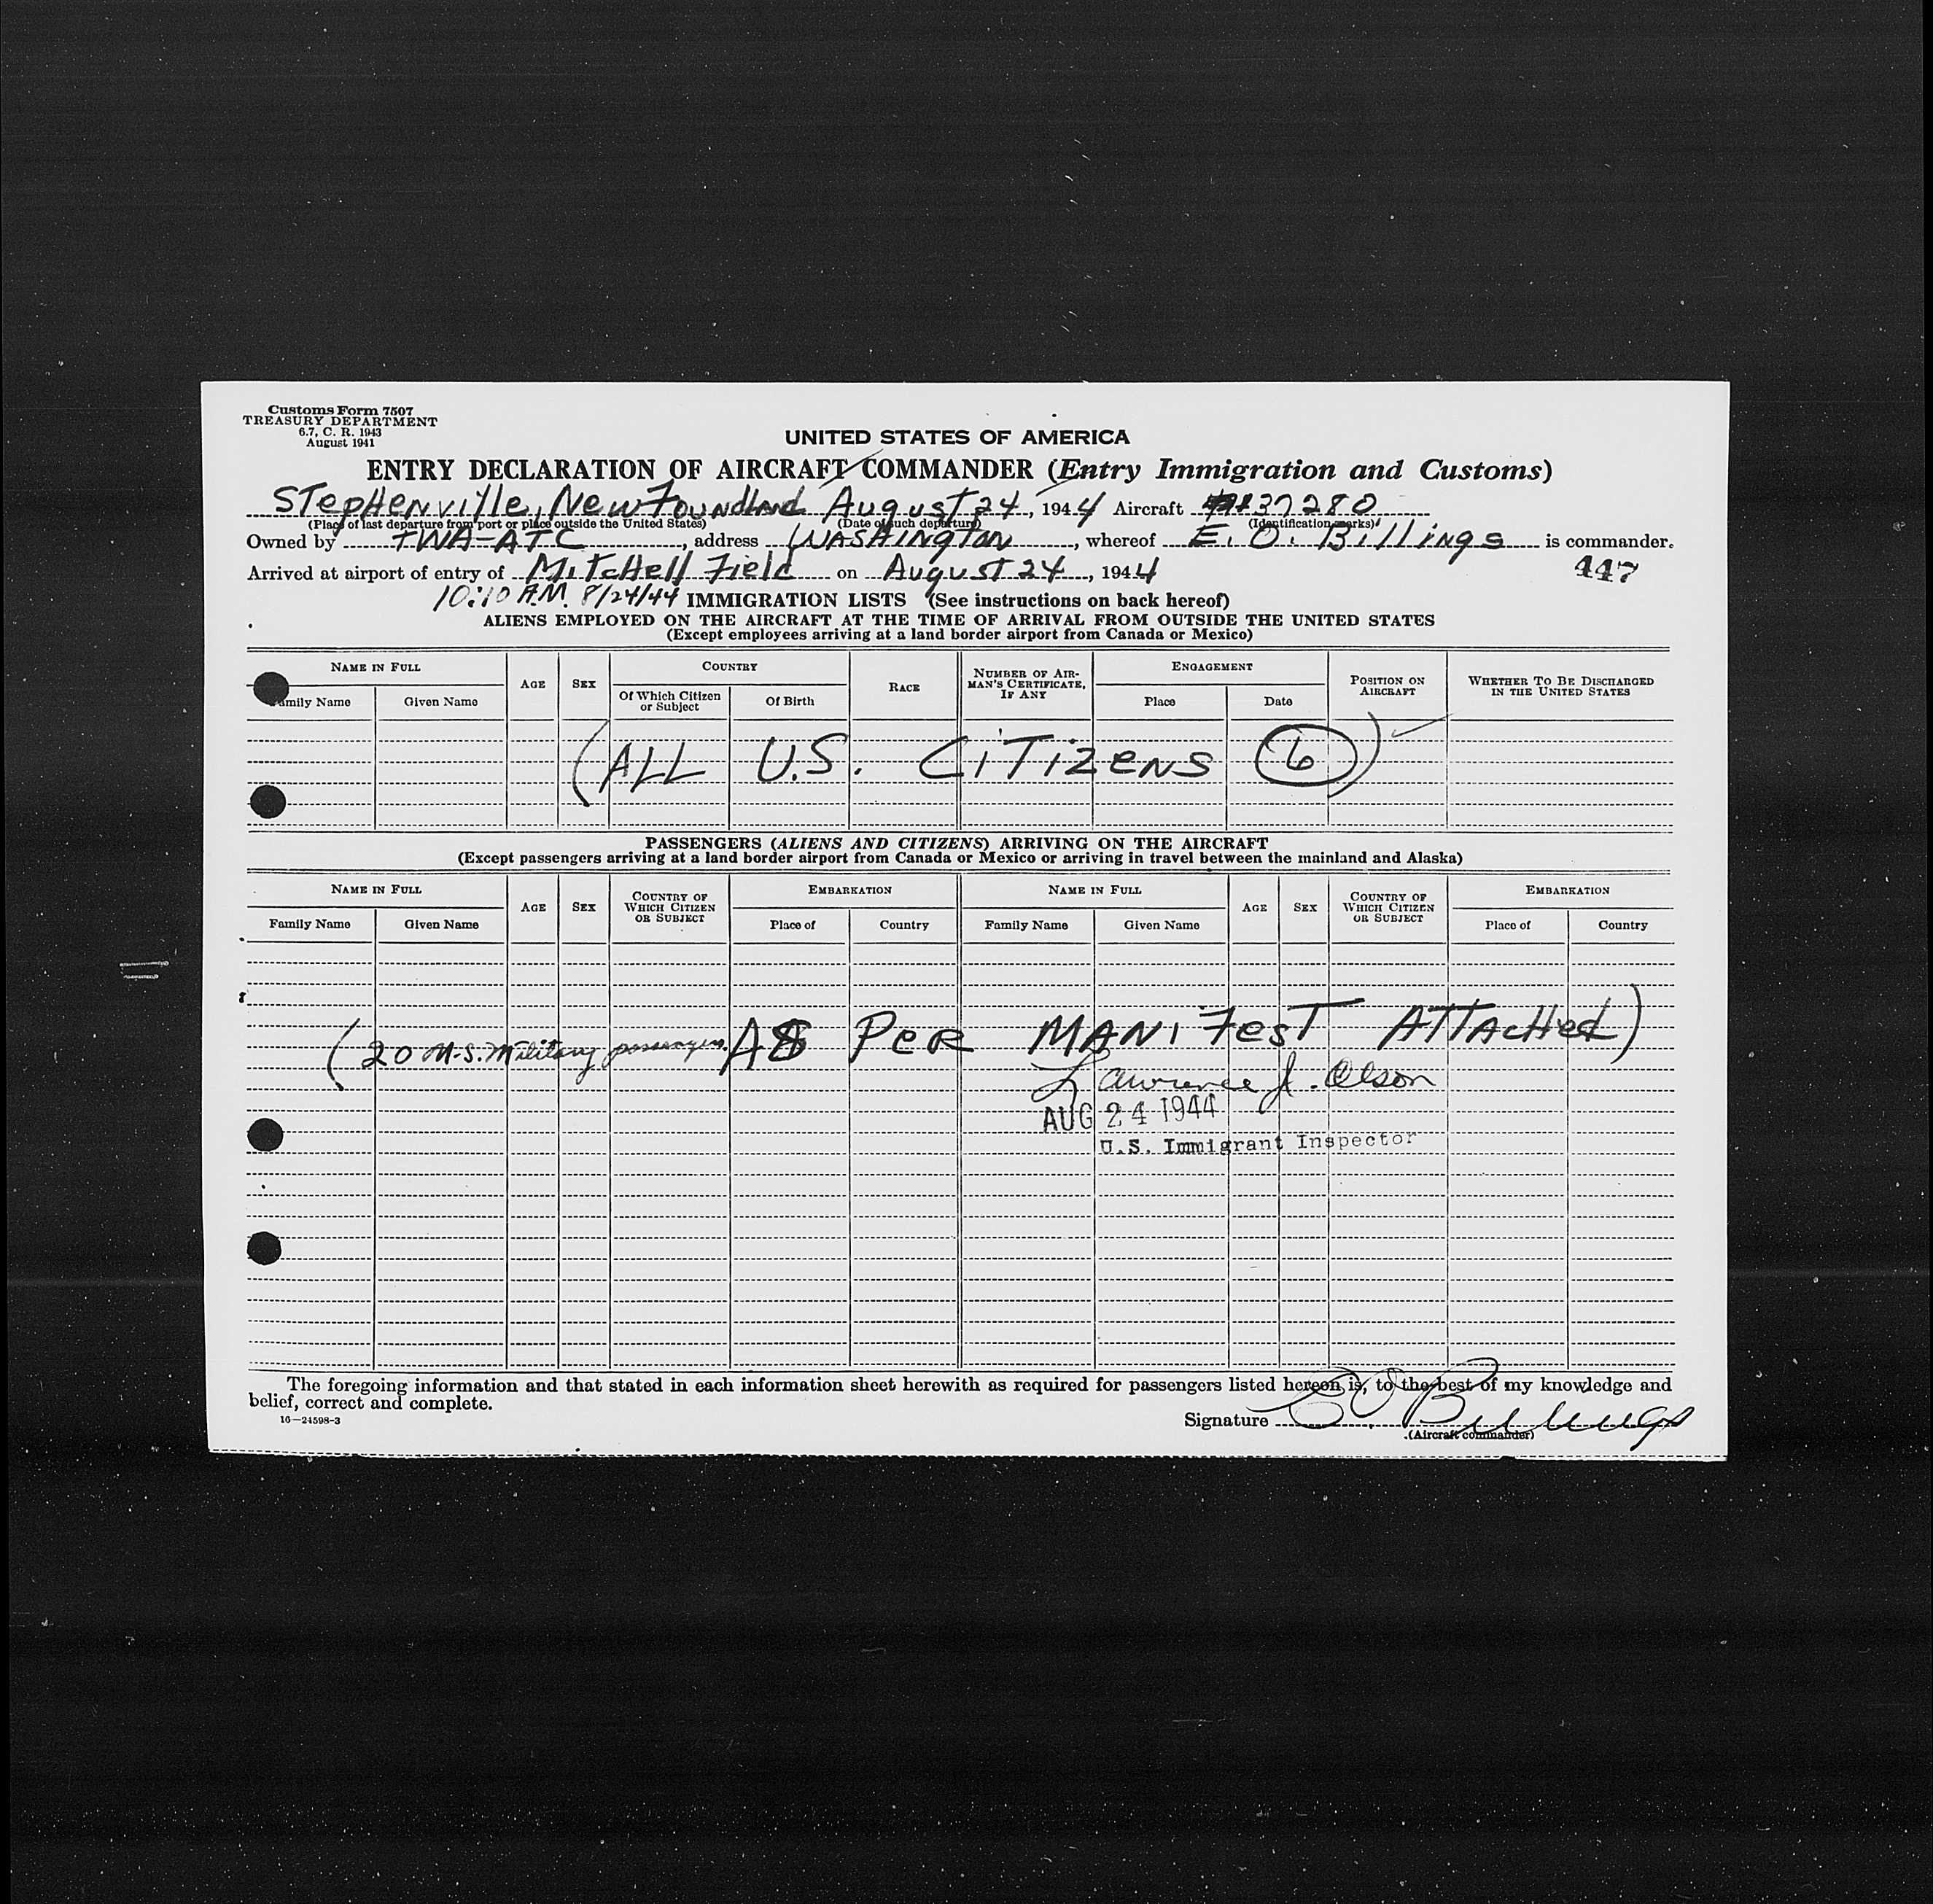 Customs Form 7507
TREASURY DEPARTMENT
6.7, C. R. 1943
August 1941
UNITED STATES OF AMERICA
ENTRY DECLARATION OF AIRCRAFT COMMANDER (Entry Immigration and Customs)
Stephenville, Newfoundland August 24, 1944 Aircraft 37280
(Place of last departure from port or place outside the United States) (Date of such departure) (Identification marks)
Owned by TWA-ATC, address Washington, whereof E. O. Billings is commander.
Arrived at airport of entry of Mitchell Field on August 24, 1944
447
10:10 A.M. 8/24/44 IMMIGRATION LISTS (See instructions on back hereof)
ALIENS EMPLOYED ON THE AIRCRAFT AT THE TIME OF ARRIVAL FROM OUTSIDE THE UNITED STATES
(Except employees arriving at a land border airport from Canada or Mexico)
NAME IN FULL AGE SEX COUNTRY RACE NUMBER OF AIRMAN'S CERTIFICATE, IF ANY ENGAGEMENT POSITION ON AIRCRAFT WHETHER TO BE DISCHARGED IN THE UNITED STATES
Family Name Given Name Of Which Citizen or Subject Of Birth Place Date
(ALL U.S. CITIZENS 6)
PASSENGERS (ALIENS AND CITIZENS) ARRIVING ON THE AIRCRAFT
(Except passengers arriving at a land border airport from Canada or Mexico or arriving in travel between the mainland and Alaska)
NAME IN FULL AGE SEX COUNTRY OF WHICH CITIZEN OR SUBJECT EMBARKATION NAME IN FULL AGE SEX COUNTRY OF WHICH CITIZEN OR SUBJECT EMBARKATION
Family Name Given Name Place of Country Family Name Given Name Place of Country
(20 U.S. Military passengers. AS PER MANIFEST ATTACHED)
Lawrence J. Olson
AUG 24 1944
U.S. Immigrant Inspector
The foregoing information and that stated in each information sheet herewith as required for passengers listed hereon is, to the best of my knowledge and
belief, correct and complete.
16—24598-3
Signature EO Billings
(Aircraft commander)